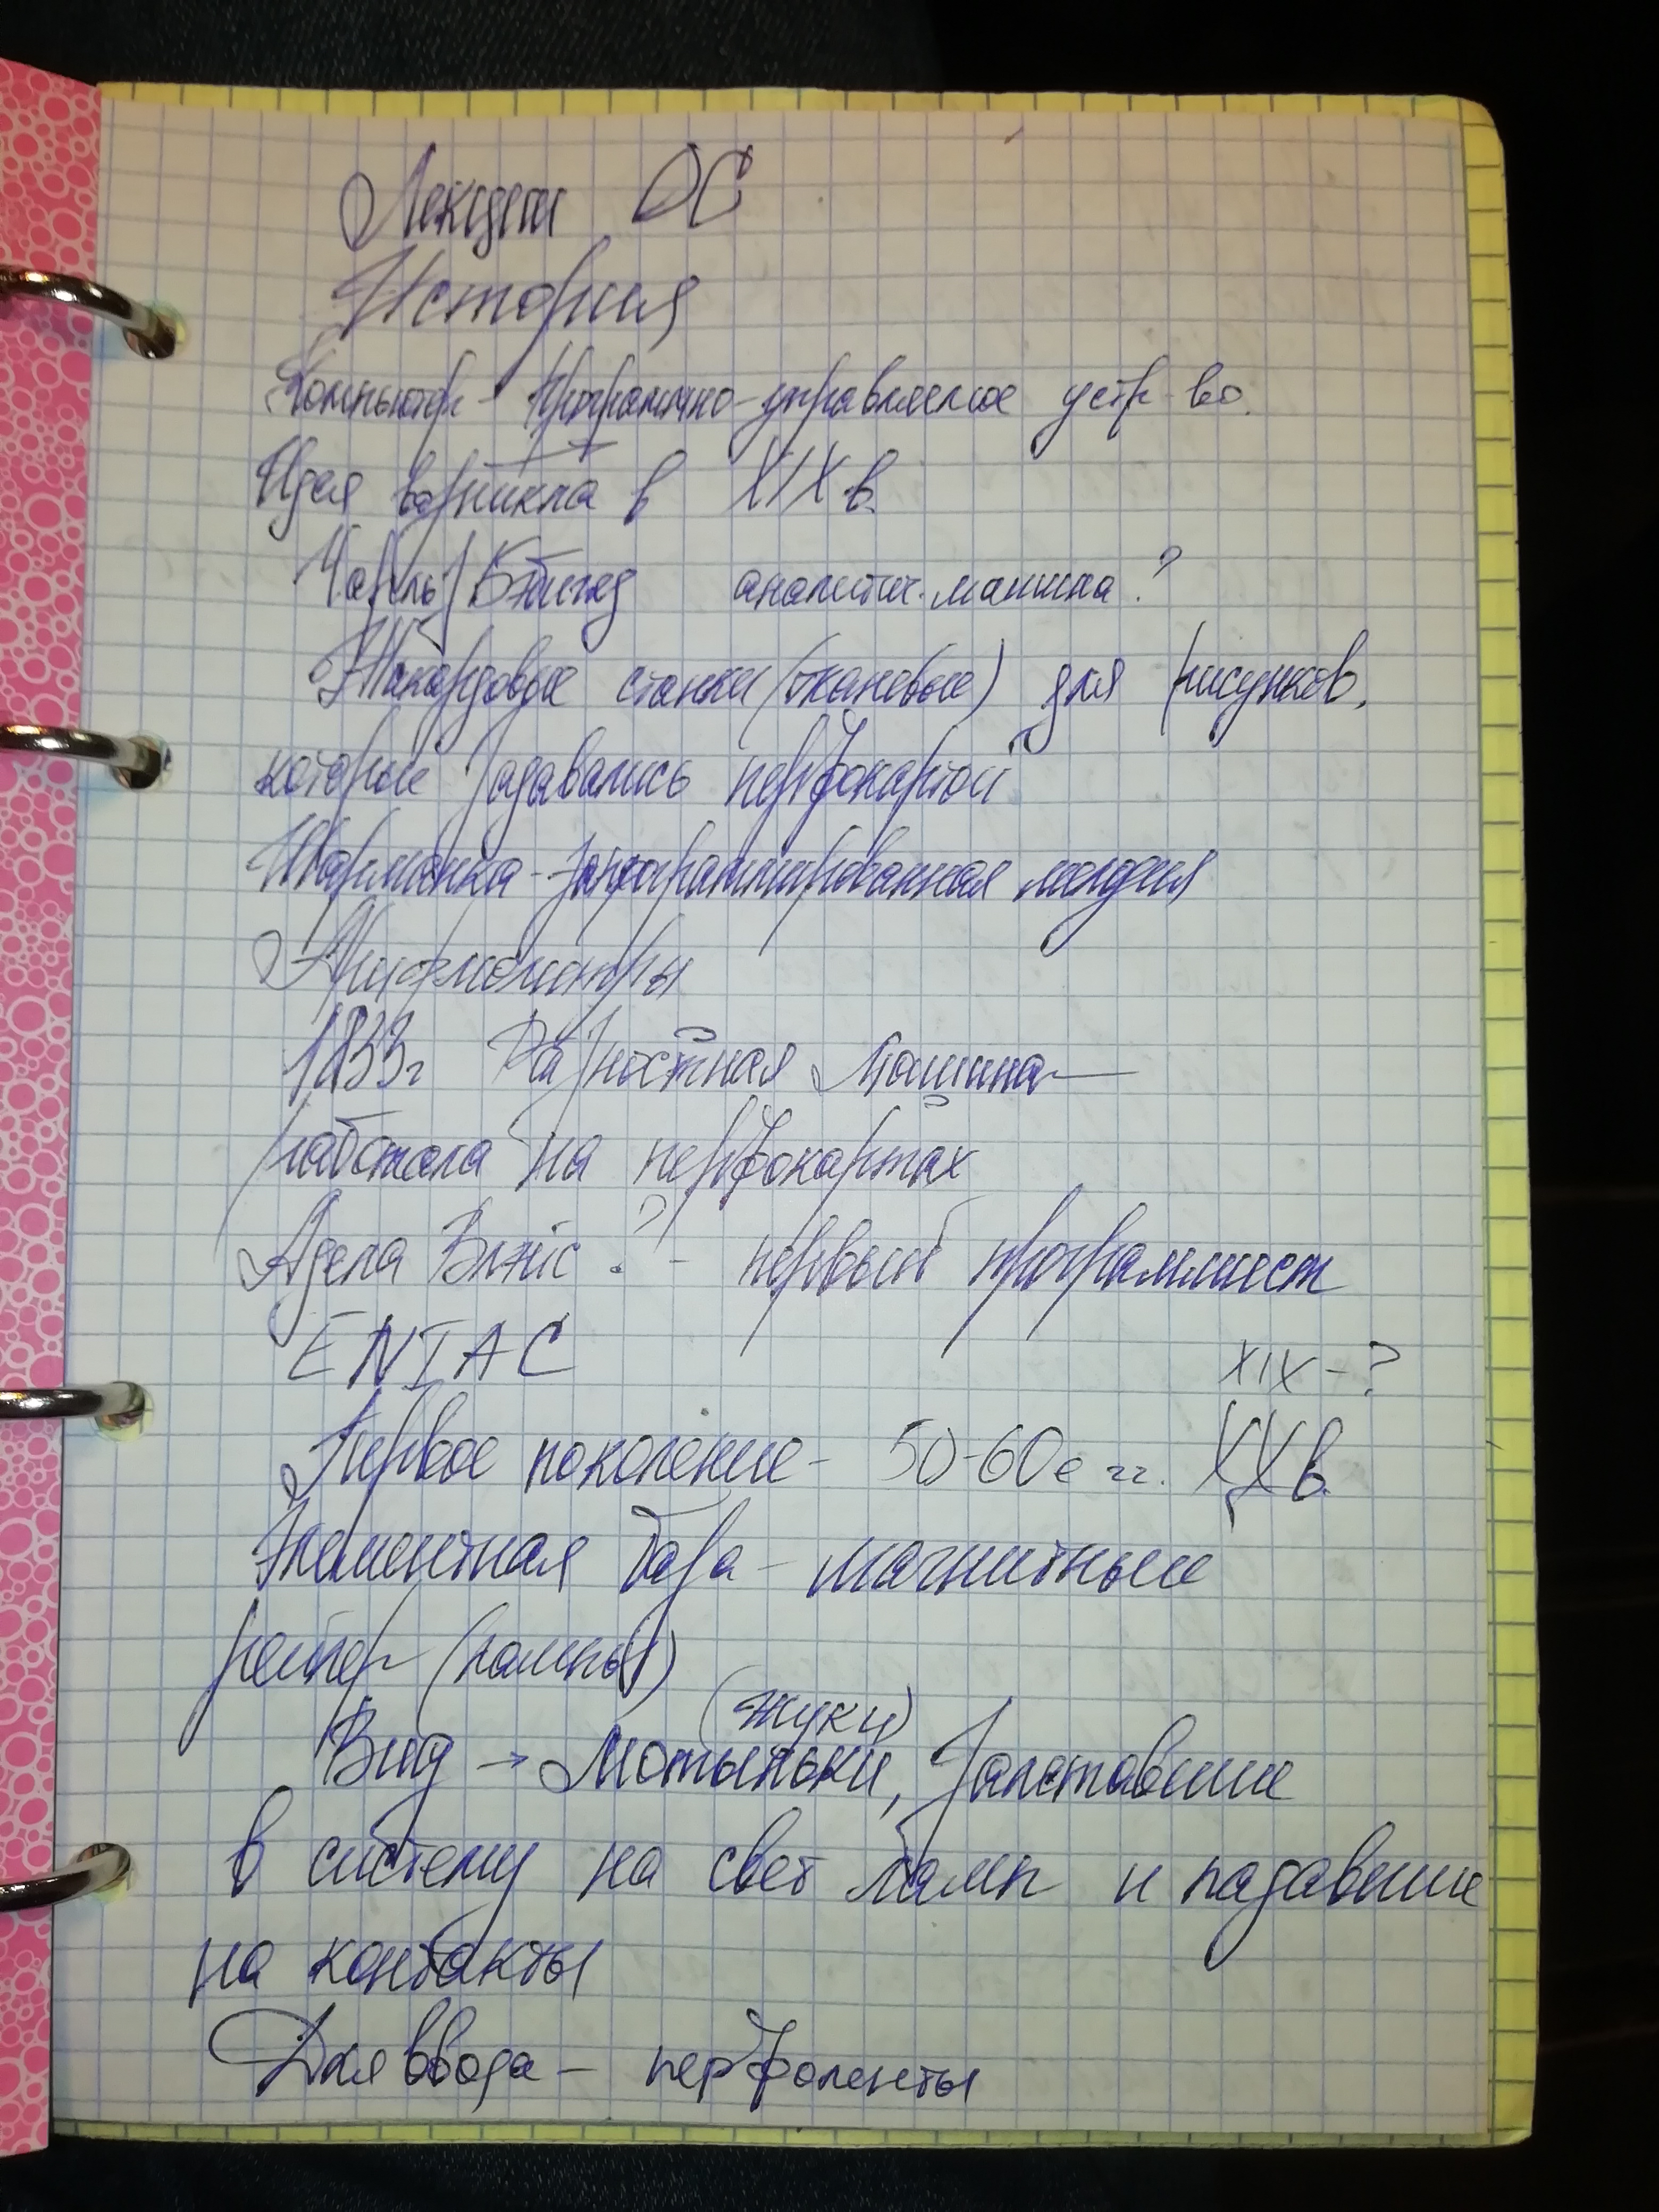 Лекции ОС
История
Компьютер - Програмно-управляемое устр-во.
Идея возникла в XIX в.
Чарльз Бэбидж аналитич. машина?
Жакардовые станки (тканевые) для рисунков,
которые задавались перфокартой
Шарманка - запрограммированная мелодия
Арифмометры
1833г Разностная Машина—
работала на перфокартах
Адела Влэйс ? - первый программист
ENIAC
XIX - ?
Первое поколение - 50-60е гг. XX в.
Элементная база - магнитные
(лампы)
(жуки)
→ Мотыльки, Залетавшие
в систему на свет ламп и падавшие
на контакты
Для ввода - перфоленты